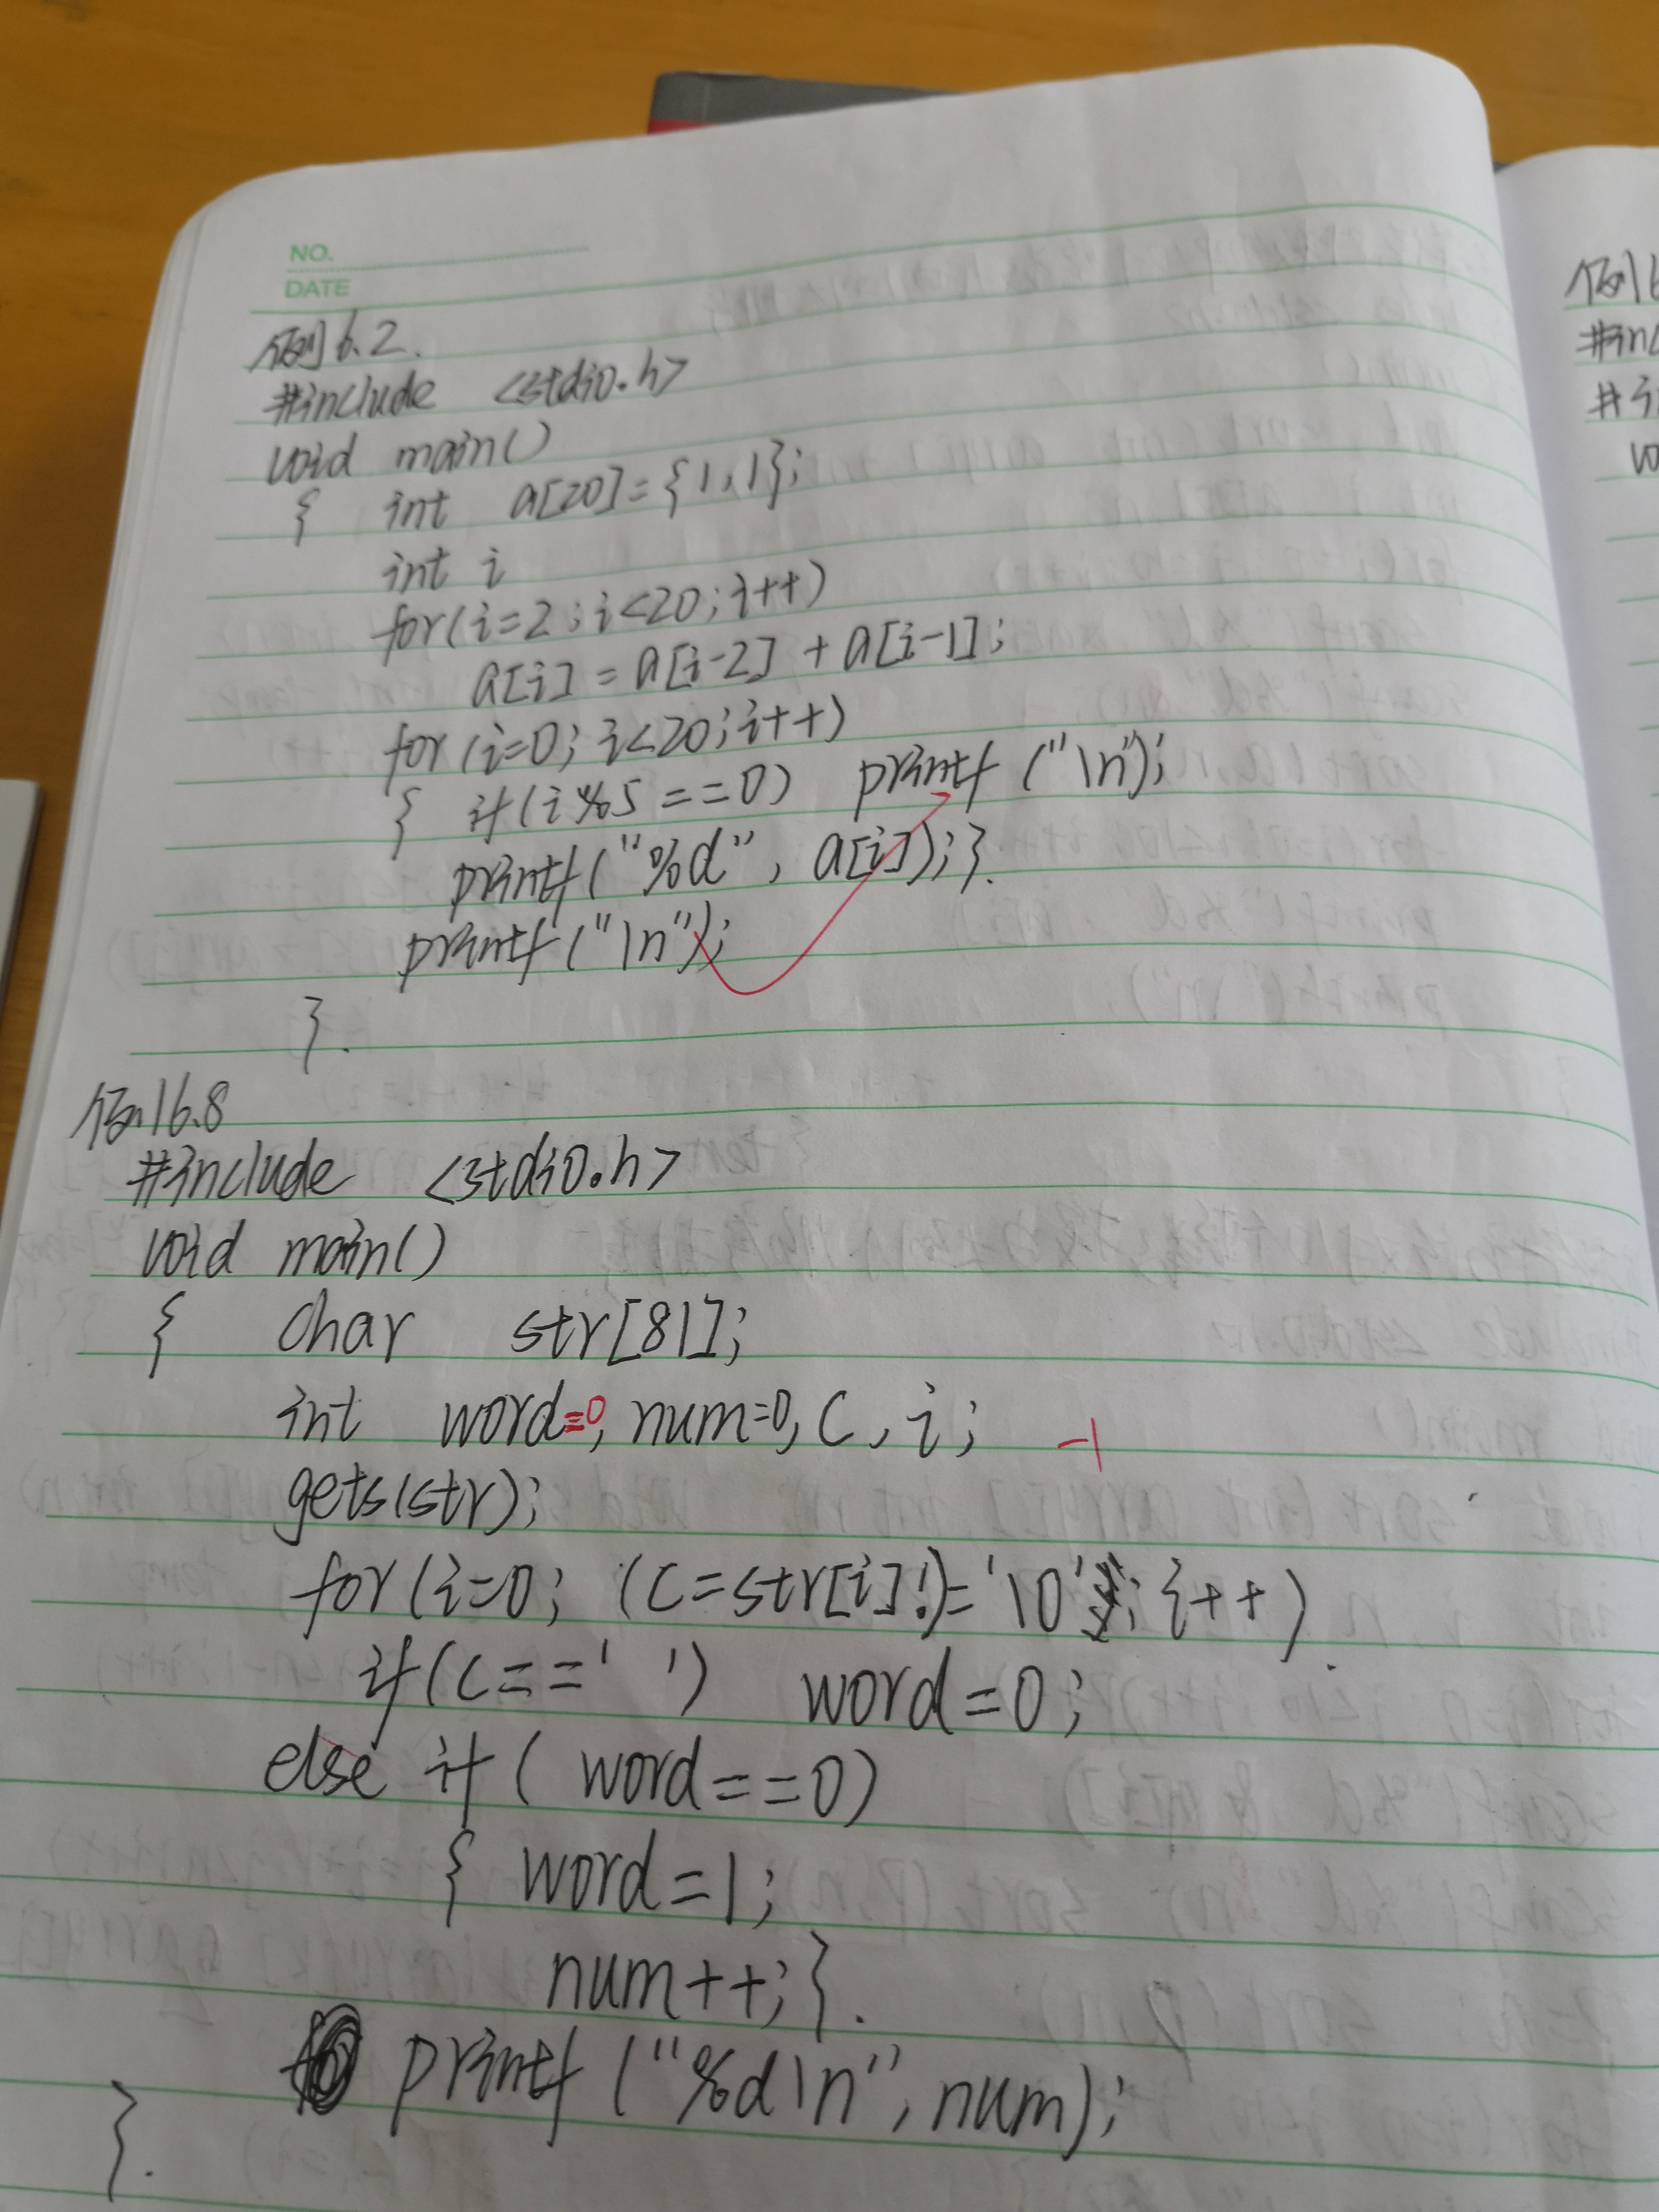 NO.
DATE
例6.2.
#include <stdio.h>
void main()
{ int a[20]={1,1};
int i
for(i=2;i<20;i++)
a[i]=a[i-2]+a[i-1];
for(i=0;i<20;i++)
{ if(i%5==0) printf("\n");
printf("%d", a[i]);}.
printf("\n");
}.
例6.8
#include <stdio.h>
void main()
{ char str[81];
int word=0, num=0, c, i; -1
gets(str);
for(i=0; (c=str[i]!)='\0'; i++)
if(c==' ') word=0;
else if( word==0)
{ word=1;
num++;}.
printf("%d\n", num);
}.
例6
#inc
#in
vo